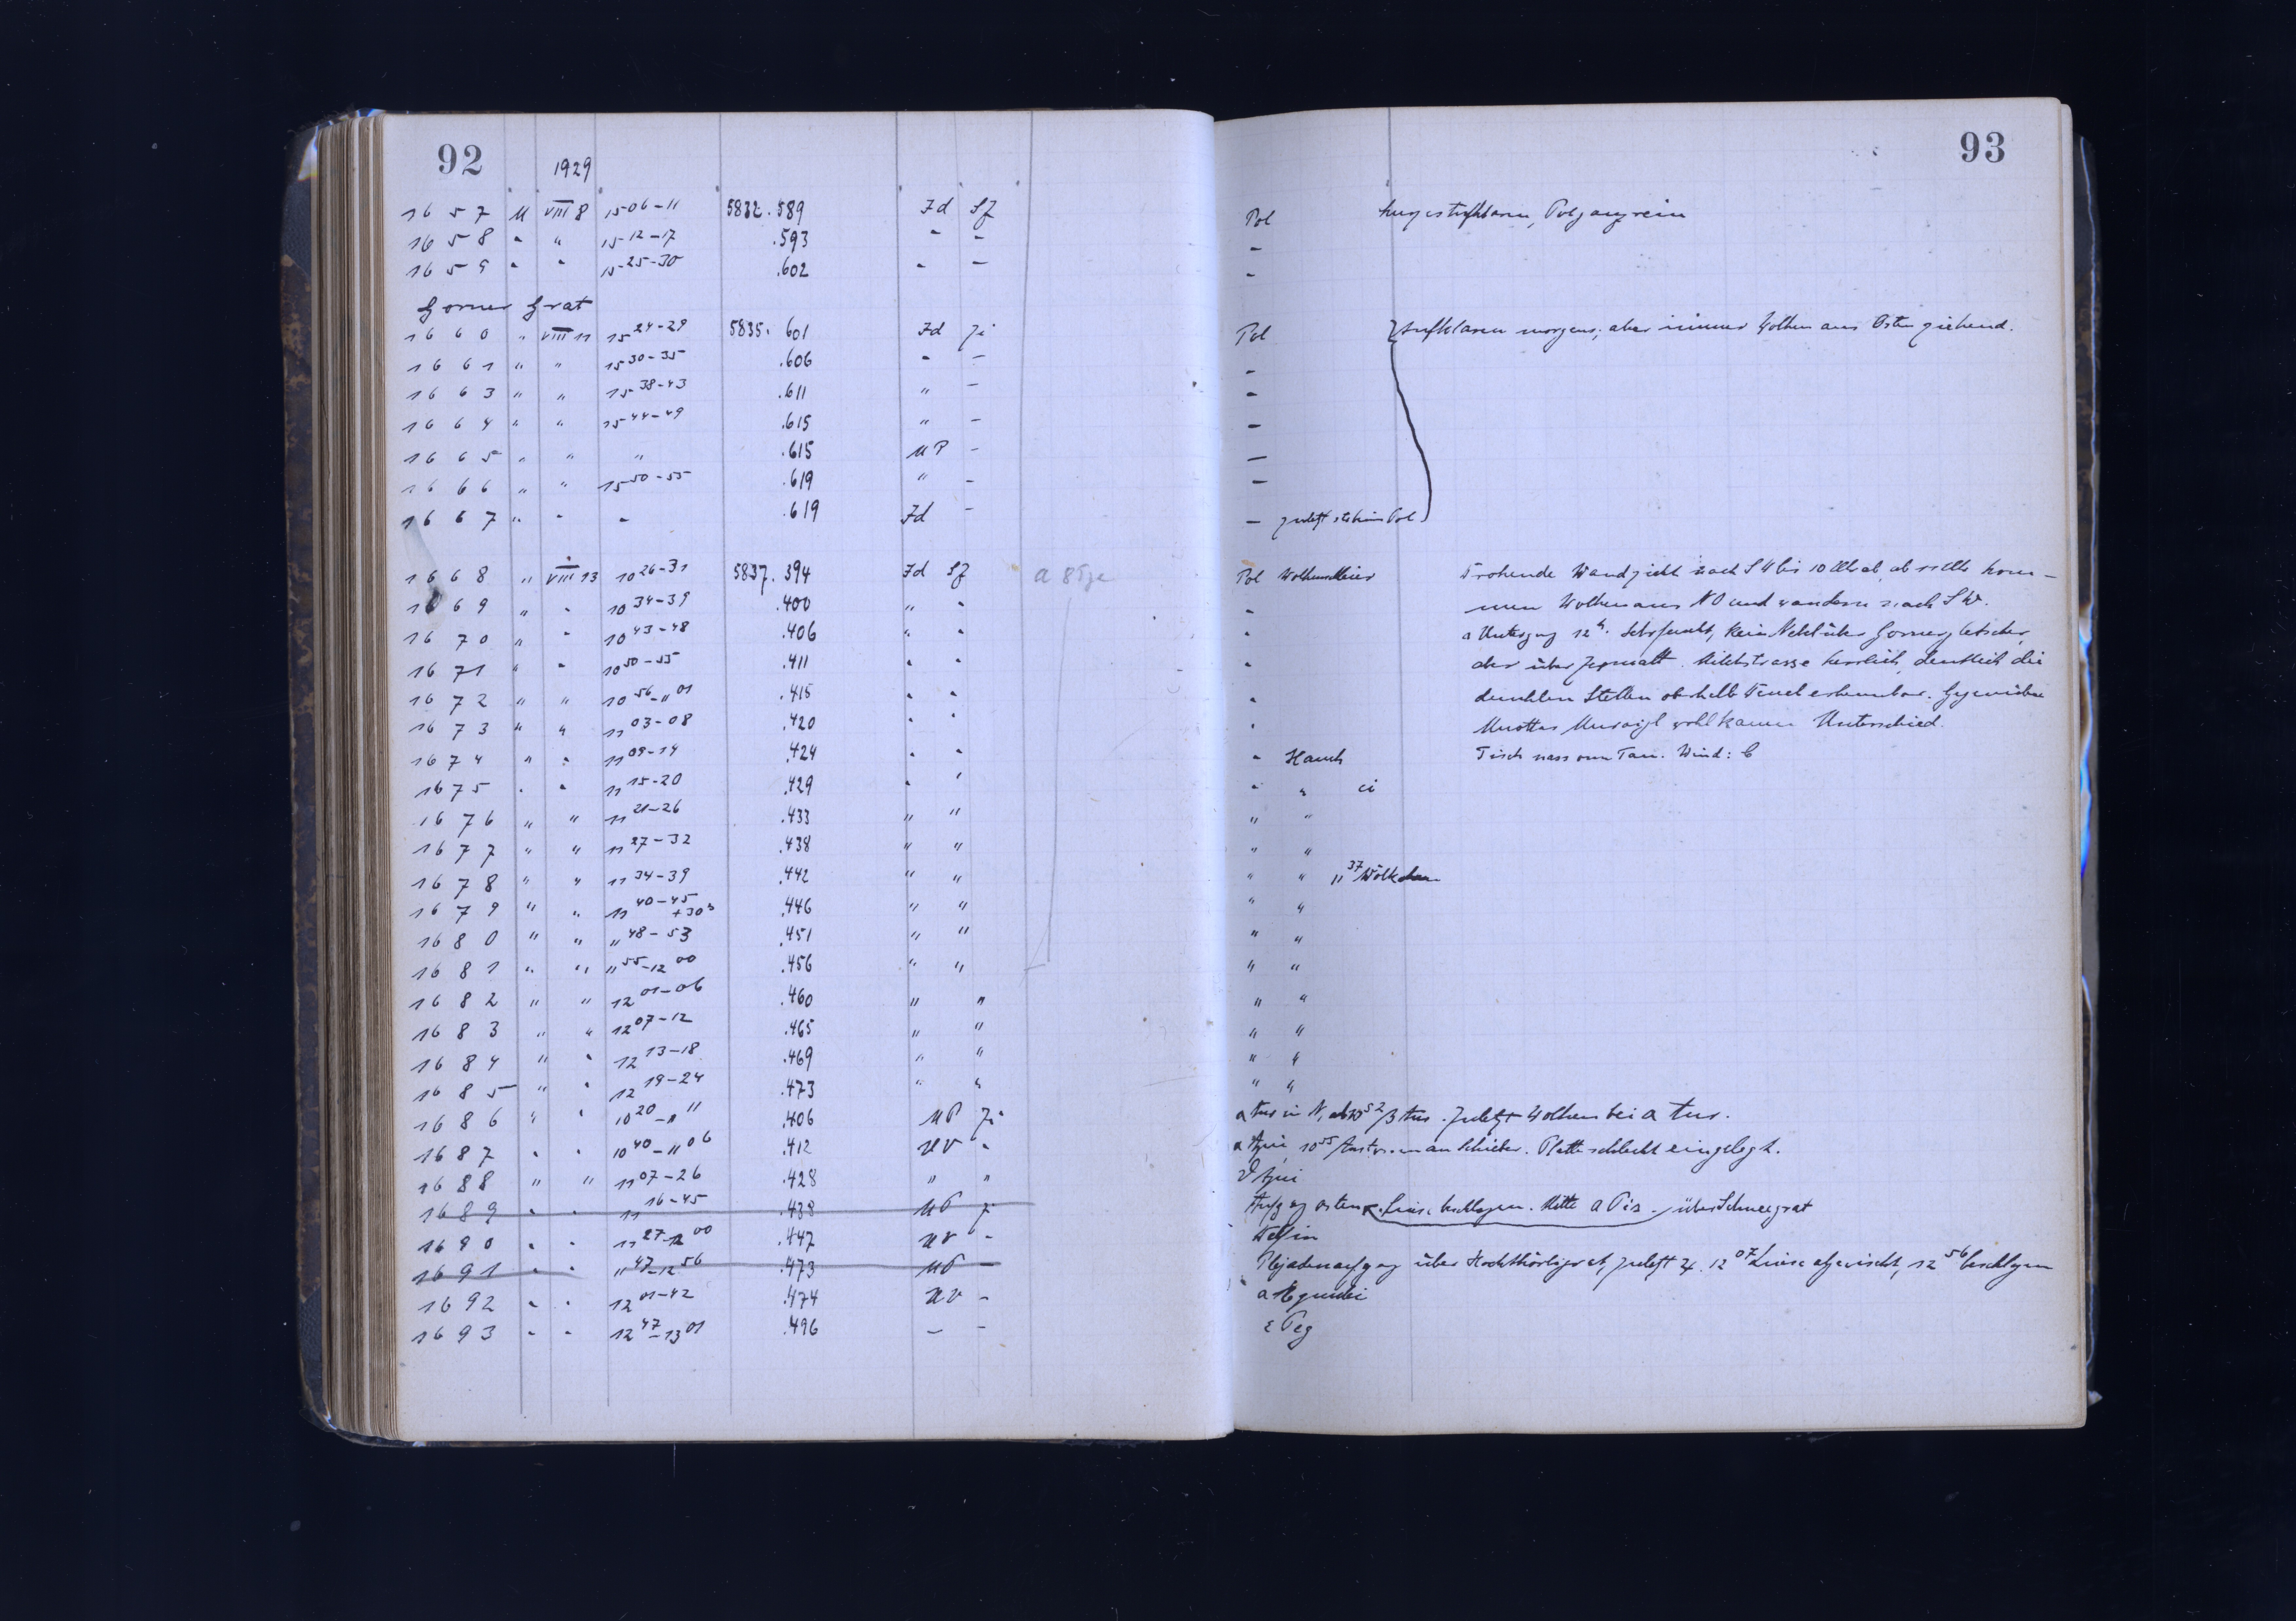 92 1929
1657 M VIII 8 15 06-11 5832.589 Id Sf
1658 " " 15 12-17 .593 " -
1659 " " 15 25-30 .602 " -
Gorner Grat
1660 " VIII 11 15 24-29 5835.601 Id Ji
1661 " " 15 30-35 .606 " -
1663 " " 15 38-43 .611 " -
1664 " " 15 44-49 .615 " -
1665 " " " .615 UP -
1666 " " 15 50-55 .619 " -
1667 " " " .619 Id -
1668 " VIII 13 10 26-31 5837.394 Id Sf
1669 " " 10 34-39 .400 " "
1670 " " 10 43-48 .406 " "
1671 " " 10 50-55 .411 " "
1672 " " 10 56-11 01 .415 " "
1673 " " 11 03-08 .420 " "
1674 " " 11 09-14 .424 " "
1675 " " 11 15-20 .429 " "
1676 " " 11 21-26 .433 " "
1677 " " 11 27-32 .438 " "
1678 " " 11 34-39 .442 " "
1679 " " 11 40-45 +30s .446 " "
1680 " " 11 48-53 .451 " "
1681 " " 11 55-12 00 .456 " "
1682 " " 12 01-06 .460 " "
1683 " " 12 07-12 .465 " "
1684 " " 12 13-18 .469 " "
1685 " " 12 19-24 .473 " "
1686 " " 10 20-11 11 .406 UP Ji
1687 " " 10 40-11 06 .412 UV "
1688 " " 11 07-26 .428 " "
1689 " " 11 16-45 .438 UP Ji
1690 " " 11 27-12 00 .447 UV -
1691 " " 11 47-12 56 .473 UP -
1692 " " 12 01-42 .474 UV -
1693 " " 12 47-13 01 .496 - -
93
Pol
-
-
Pol Aufklaren morgens; aber immer Wolken aus Osten ziehend.
-
-
-
-
-
- zuletzt Pol
Pol Wand zieht nach SW bis 10 Uhr ab, kom-
" men Wolken aus NO und wandern nach SW.
" Untergang 12h. Sehr feucht, kein Nebel über Gornergletscher,
" der über Zermatt. Milchstrasse herrlich, deutlich die
" dunklen Stellen oberhalb erkennbar. Gegenüber
" Muottas Muraigl wohl kaum Unterschied.
" Hauch Tisch nass von Tau. Wind:
" " ci
" "
" "
" " 11 37 Wölkchen
" "
" "
" "
" "
" "
" "
" "
α in N, 10 52 β . Zuletzt Wolken bei α
α Aqui 10 55 an Schieber. Platte schlecht eingelegt.
ϑ Aqui
Aufgang Osten. Linse beschlagen. Mitte α Pis. über Schneegrat
Delfin
Plejadenaufgang über , zuletzt ♃. 12 07 Linse abgewischt, 12 56 beschlagen
α Equulei
ε Peg